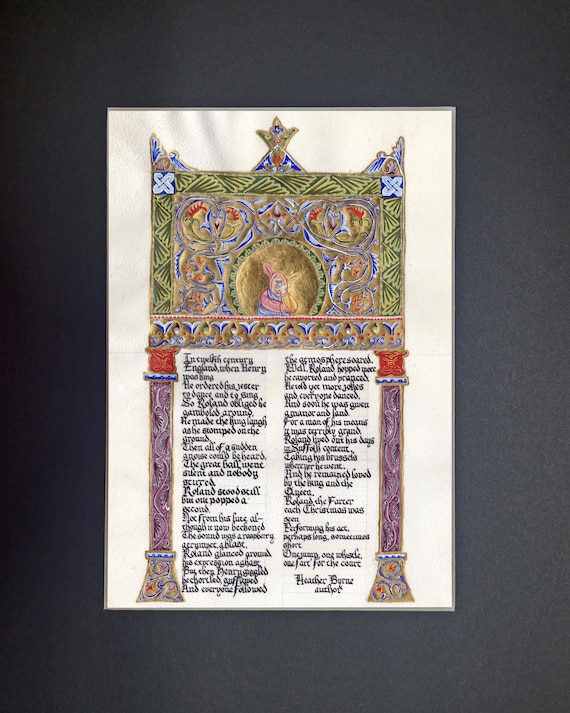 In twelfth century
England, when Henry
was king
He ordered his jester
to dance, and to sing
So Roland obliged he
gamboled around
He made the king laugh
as he stomped on the
ground
Then all of a sudden
a noise could be heard.
The great hall went
silent and nobody
stirred
Roland stood still
but out popped a
second
Not from his lute, al-
though it now beckoned
The sound was a raspberry
a trumpet, a blast,
Roland glanced around
his expression aghast
But then Henry giggled
he chortled, guffawed
And everyone followed
the atmosphere soared.
Well, Roland hopped more
he cavorted and pranced,
He told yet more jokes
and everyone danced,
And soon he was given
a manor and land
For a man of his means
it was terribly grand
Roland lived out his days
in Suffolk content
Taking his brussels
wherever he went.
And he remained loved
by the king and the
Queen.
Roland the Farter
each Christmas was
seen
Performing his act,
perhaps long, sometimes
short
One jump, one whistle,
one fart for the court
Heather Byrne
author